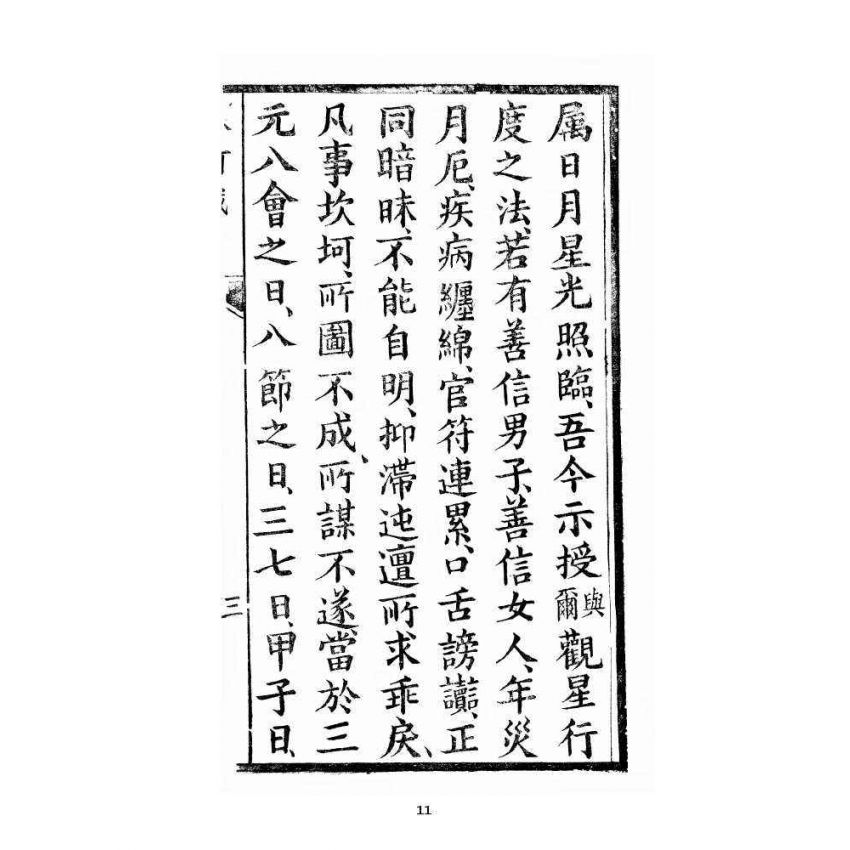 属日月星光照臨、吾今示授與爾觀星行
度之法、若有善信男子、善信女人、年災
月厄、疾病纏綿、官符連累、口舌謗讟、正
同暗昧、不能自明、抑滯迍邅所求乖戾、
凡事坎坷、所圖不成、所謀不遂、當於三
元八會之日、八節之日、三七日、甲子日、
三
11